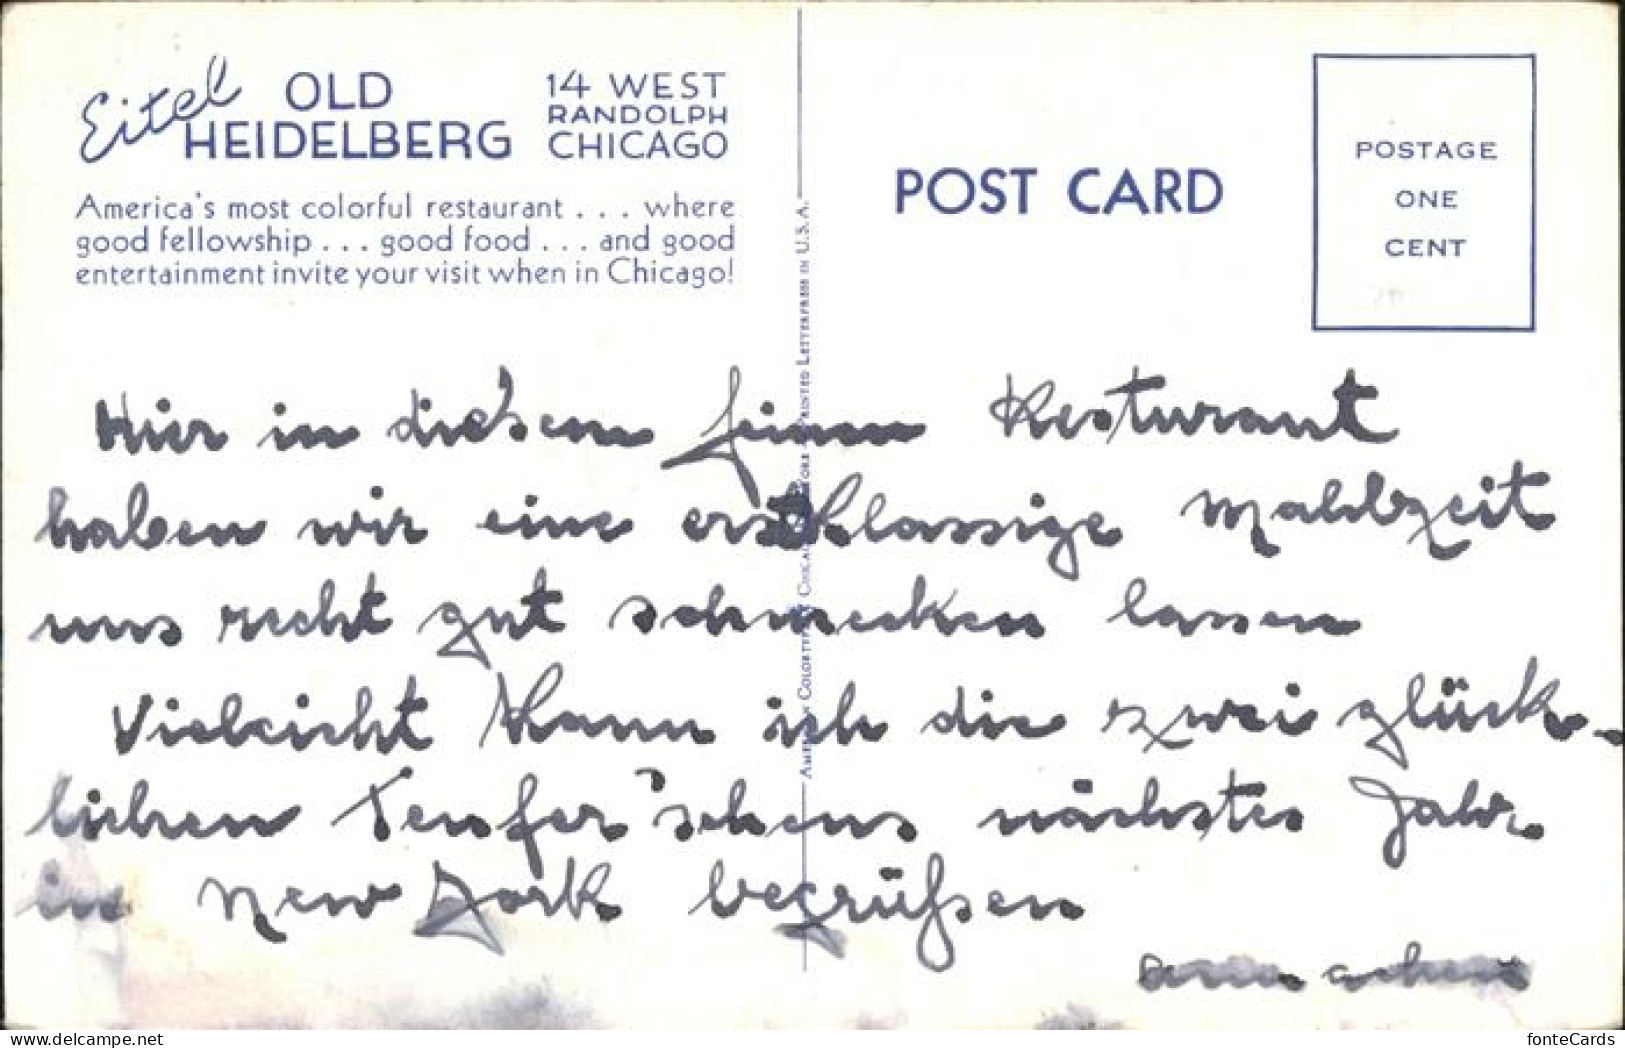 Eitel OLD HEIDELBERG
14 WEST RANDOLPH CHICAGO
America's most colorful restaurant . . . where
good fellowship . . . good food . . . and good
entertainment invite your visit when in Chicago!
POST CARD
POSTAGE
ONE
CENT
Hier in diesem feinen Resturant
haben wir eine erstklassige Mahlzeit
uns recht gut schmecken lassen
Vielleicht kann ich die zwei glück-
lichen Teufer'schens nächstes Jahr
in New York begrüßen
www.delcampe.net
fonteCards